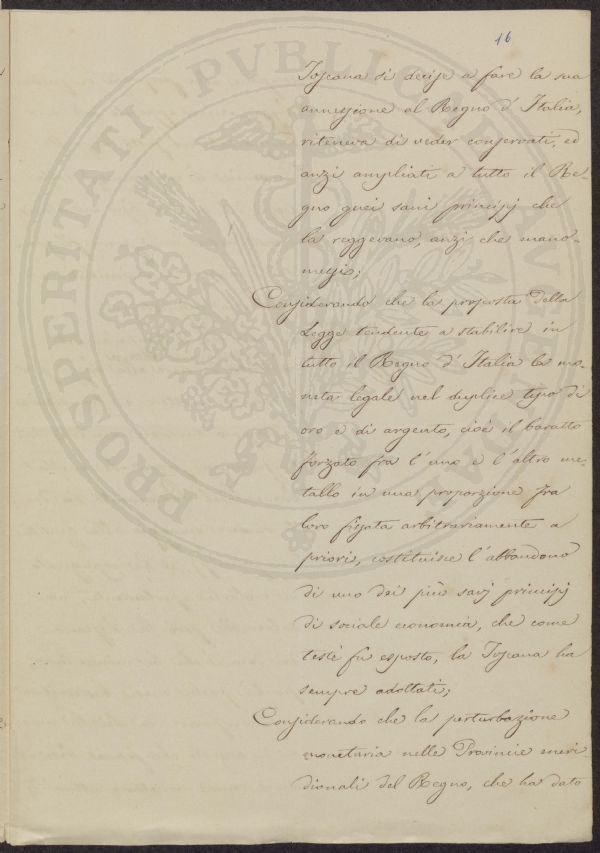 16
Toscana si decise a fare la sua
annessione al Regno d'Italia,
riteneva di veder conservati, ed
anzi ampliati a tutto il Re-
gno quei sani principj che
la reggevano, anzi che mano-
messi;
Considerando che la proposta Della
Legge tendente a stabilire in
tutto il Regno d'Italia la mo-
neta legale nel duplice tipo di
oro e di argento, cioè il baratto
forzato fra l'uno e l'altro me-
tallo in una proporzione fra
loro fissata arbitrariamente a
priori, costituisce l'abbandono
di uno dei più savj principj
di sociale economia, che come
testè fu esposto, la Toscana ha
sempre adottati;
Considerando che la perturbazione
monetaria nelle Provincie meri
dionali del Regno, che ha dato
PROSPERITATI PVBLICAE